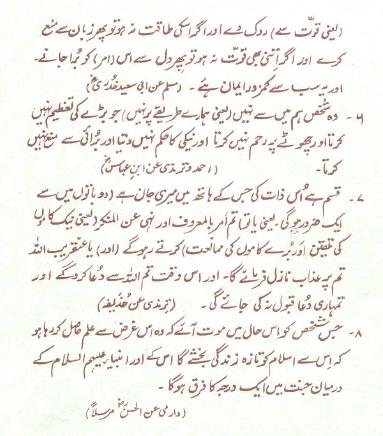 (یعنی قوّت سے) روک دے اور اگر اسکی طاقت نہ ہو تو پھر زبان سے منع
کرے اور اگر اتنی بھی قوّت نہ ہو تو پھر دل سے اس (امر) کو بُرا جانے۔
اور یہ سب سے کمزور ایمان ہے۔ (مسلم عن ابی سعید خدریؓ)
۶۔ وہ شخص ہم میں سے نہیں (یعنی ہمارے طریقے پر نہیں) جو بڑے کی تعظیم نہیں
کرتا اور چھوٹے پر رحم نہیں کرتا اور نیکی کا حکم نہیں دیتا اور بُرائی سے منع نہیں
کرتا۔ (احمد و ترمذی عن ابن عباسؓ)
۷۔ قسم ہے اُس ذات کی جس کے ہاتھ میں میری جان ہے (دو باتوں میں سے
ایک ضرور ہوگی۔ یعنی یا تو) تم امر بالمعروف اور نہی عن المنکر (یعنی نیک کاموں
کی تلقین اور بُرے کاموں کی ممانعت) کرتے رہو گے (اور) یا عنقریب اللہ
تم پر عذاب نازل فرمائے گا۔ اور اس وقت تم اللہ سے دُعا کرو گے اور
تمہاری دُعا قبول نہ کی جائے گی۔ (ترمذی عن حذیفہؓ)
۸۔ جس شخص کو اس حال میں موت آئے کہ وہ اس غرض سے علم حاصل کر رہا ہو
کہ اِس سے اسلام کو تازہ زندگی بخشے گا اس کے اور انبیاء علیہم السلام کے
درمیان جنت میں ایک درجہ کا فرق ہوگا۔
(دارمی عن الحسنؓ مرسلاً)